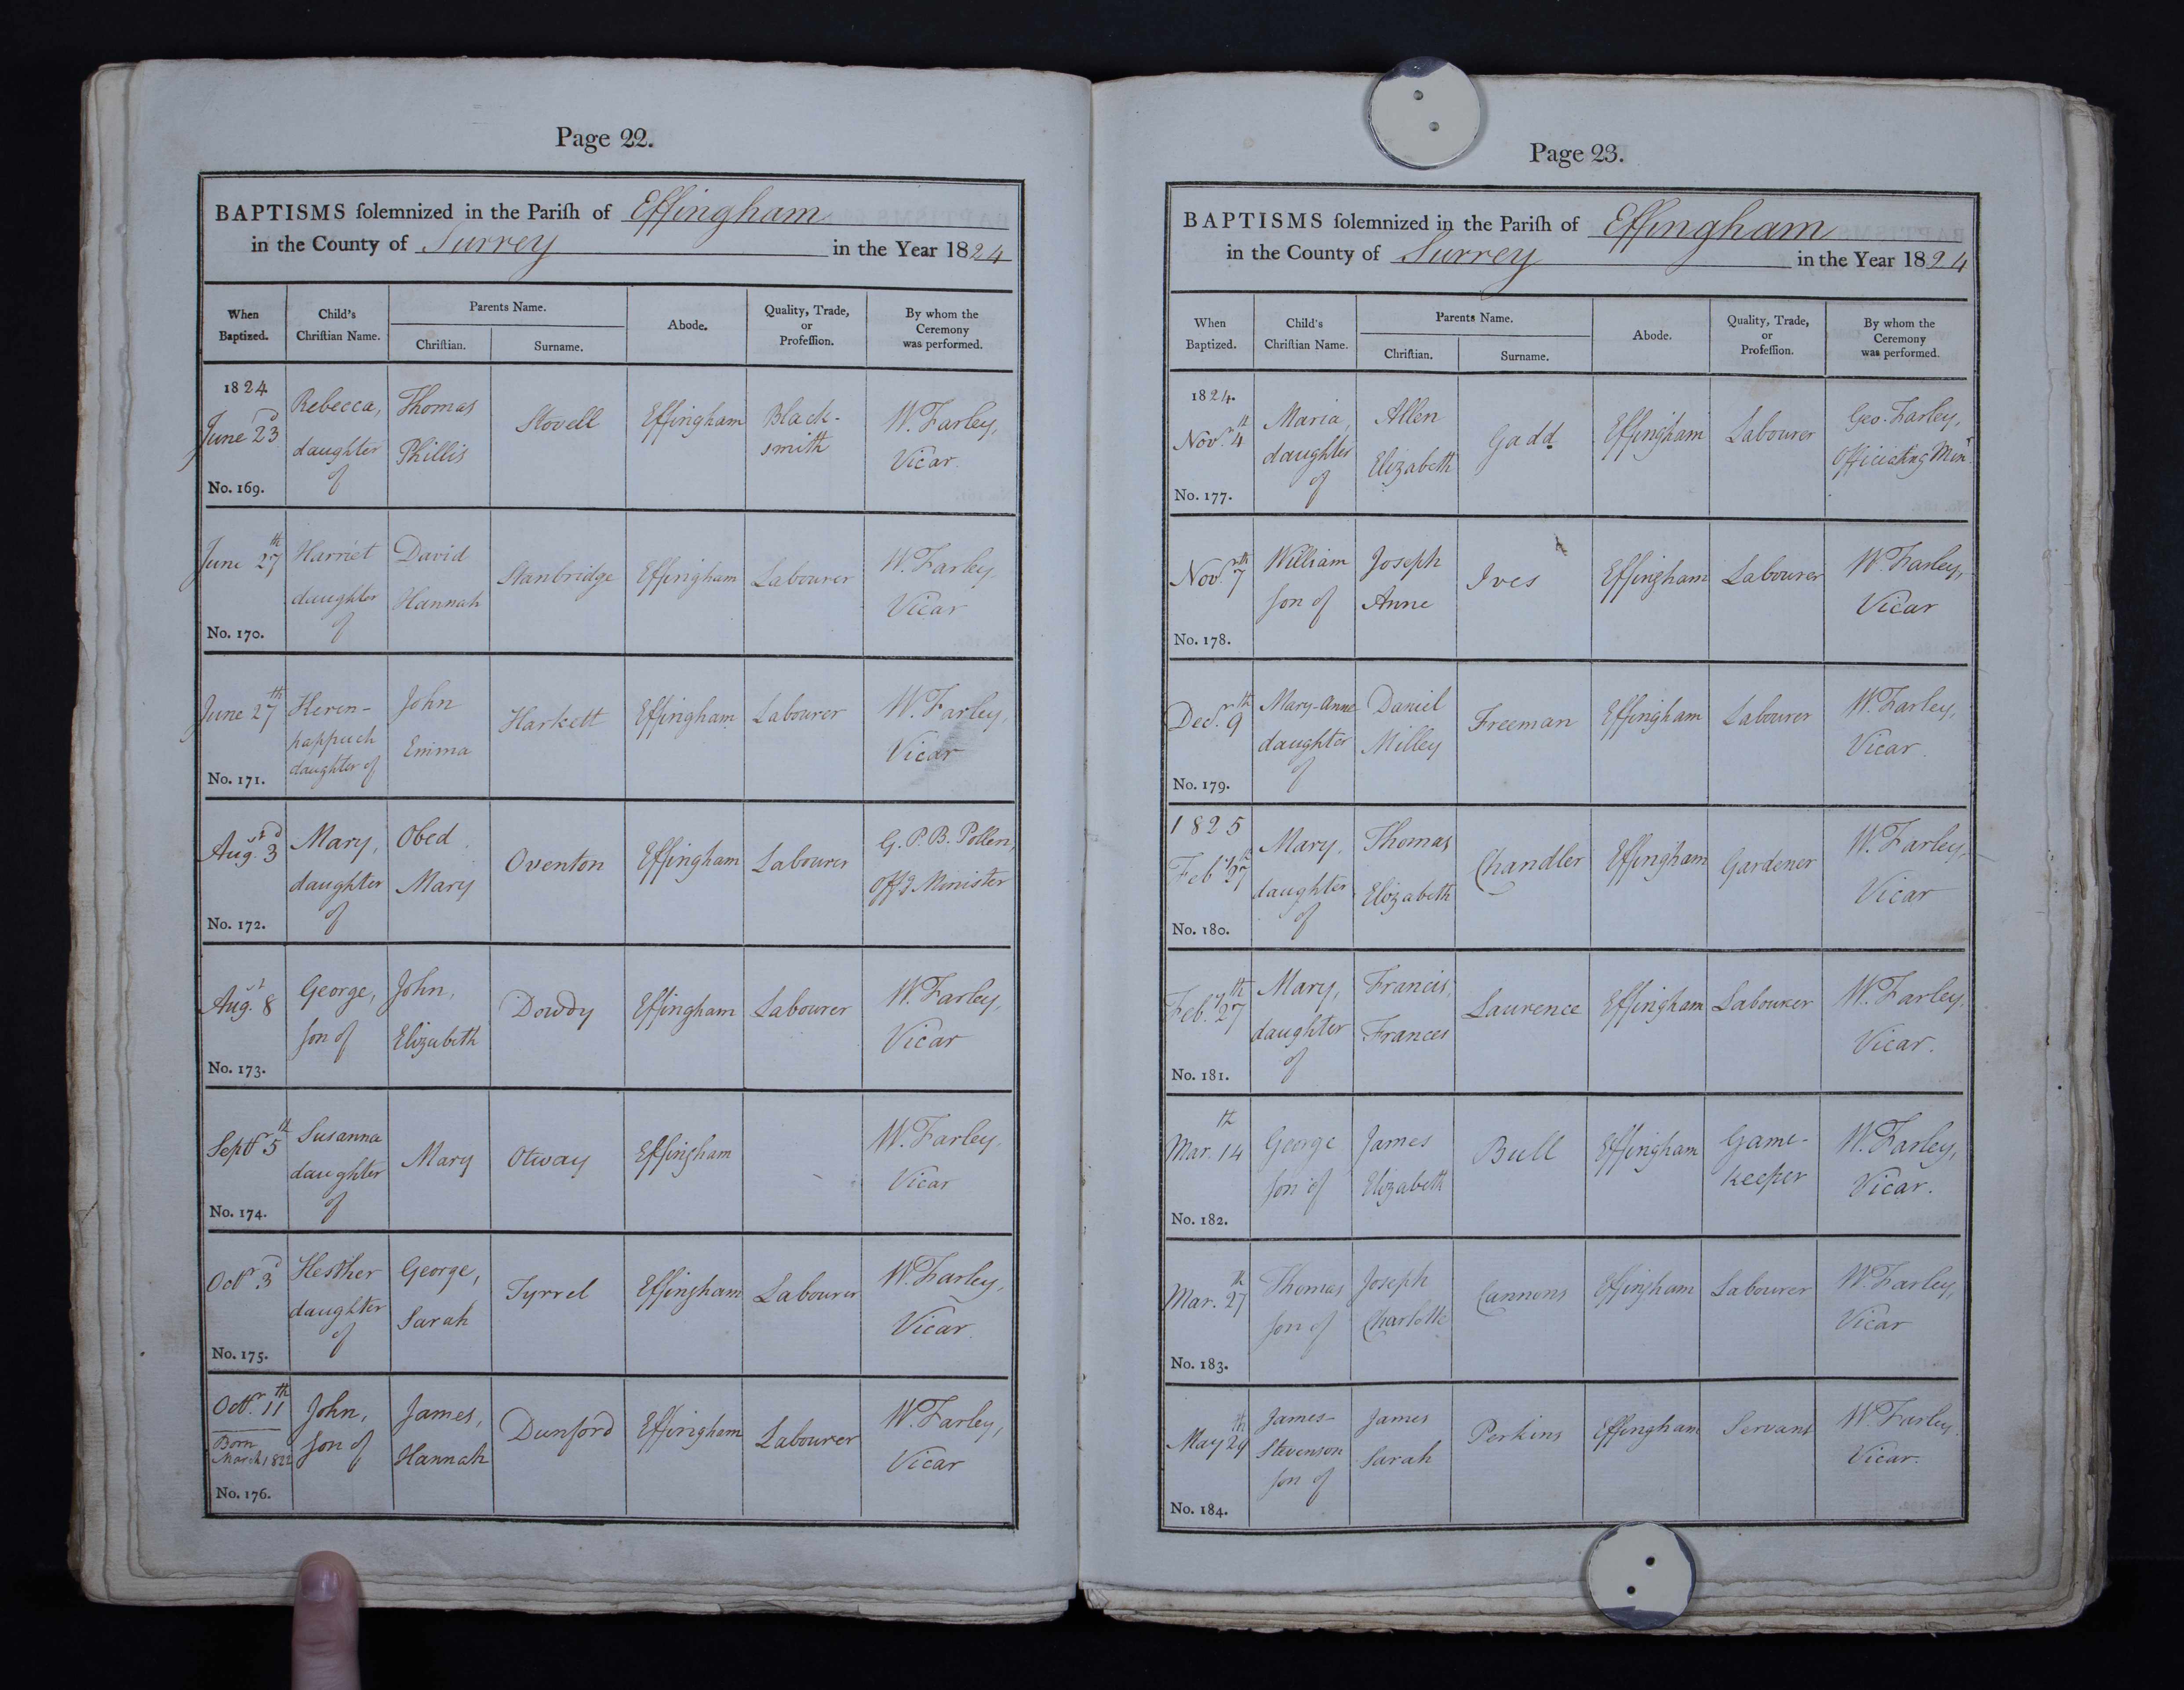 Page 22.
BAPTISMS ſolemnized in the Pariſh of Effingham
in the County of Surrey in the Year 1824
When Baptized.
Child's Chriſtian Name.
Parents Name.
Chriſtian.
Surname.
Abode.
Quality, Trade, or Profeſſion.
By whom the Ceremony was performed.
1824
June 23d
No. 169.
Rebecca,
daughter
of
Thomas
Phillis
Stovell
Effingham
Black-
smith
W. Farley,
Vicar.
June 27th
No. 170.
Harriet
daughter
of
David
Hannah
Stanbridge
Effingham
Labourer
W. Farley,
Vicar
June 27th
No. 171.
Keren-
happuch
daughter of
John
Emma
Harkett
Effingham
Labourer
W. Farley,
Vicar
Augst. 3d
No. 172.
Mary,
daughter
of
Obed
Mary
Oventon
Effingham
Labourer
G. P. B. Pollen,
Offg Minister
Augst. 8
No. 173.
George,
son of
John,
Elizabeth
Dowdy
Effingham
Labourer
W. Farley,
Vicar
Septr 5th
No. 174.
Susanna
daughter
of
Mary
Otway
Effingham
W. Farley,
Vicar
Octr 3d
No. 175.
Hesther
daughter
of
George,
Sarah
Tyrrel
Effingham
Labourer
W. Farley,
Vicar.
Octr. 11th
Born
March 1822
No. 176.
John,
son of
James,
Hannah
Dunford
Effingham
Labourer
W. Farley,
Vicar
Page 23.
BAPTISMS ſolemnized in the Pariſh of Effingham
in the County of Surrey in the Year 1824
When Baptized.
Child's Chriſtian Name.
Parents Name.
Chriſtian.
Surname.
Abode.
Quality, Trade, or Profeſſion.
By whom the Ceremony was performed.
1824.
Novr. 4th
No. 177.
Maria,
daughter
of
Allen
Elizabeth
Gadd
Effingham
Labourer
Geo. Farley,
Officiating Minr.
Novr. 7th
No. 178.
William
son of
Joseph
Anne
Ives
Effingham
Labourer
W. Farley,
Vicar
Decr. 9th
No. 179.
Mary-Anne
daughter
of
Daniel
Milley
Freeman
Effingham
Labourer
W. Farley,
Vicar.
1825
Feby 27th
No. 180.
Mary,
daughter
of
Thomas
Elizabeth
Chandler
Effingham
Gardener
W. Farley,
Vicar
Feby. 27th
No. 181.
Mary,
daughter
of
Francis,
Frances
Laurence
Effingham
Labourer
W. Farley,
Vicar.
Mar. 14th
No. 182.
George
son of
James
Elizabeth
Bull
Effingham
Game-
keeper
W. Farley,
Vicar.
Mar. 27th
No. 183.
Thomas
son of
Joseph
Charlotte
Cannons
Effingham
Labourer
W. Farley,
Vicar
May 29th
No. 184.
James-
Stevenson
son of
James
Sarah
Perkins
Effingham
Servant
W. Farley
Vicar.